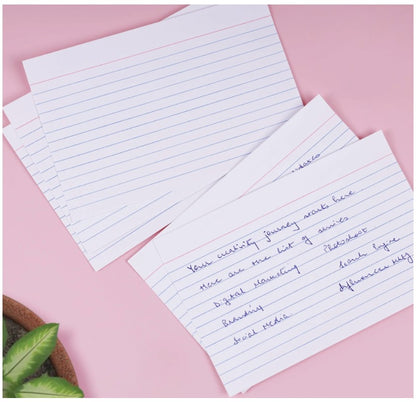 Your creativity journey starts here
Here are the list of services
Digital Marketing Photoshoot
Branding Search Engine
Social Media